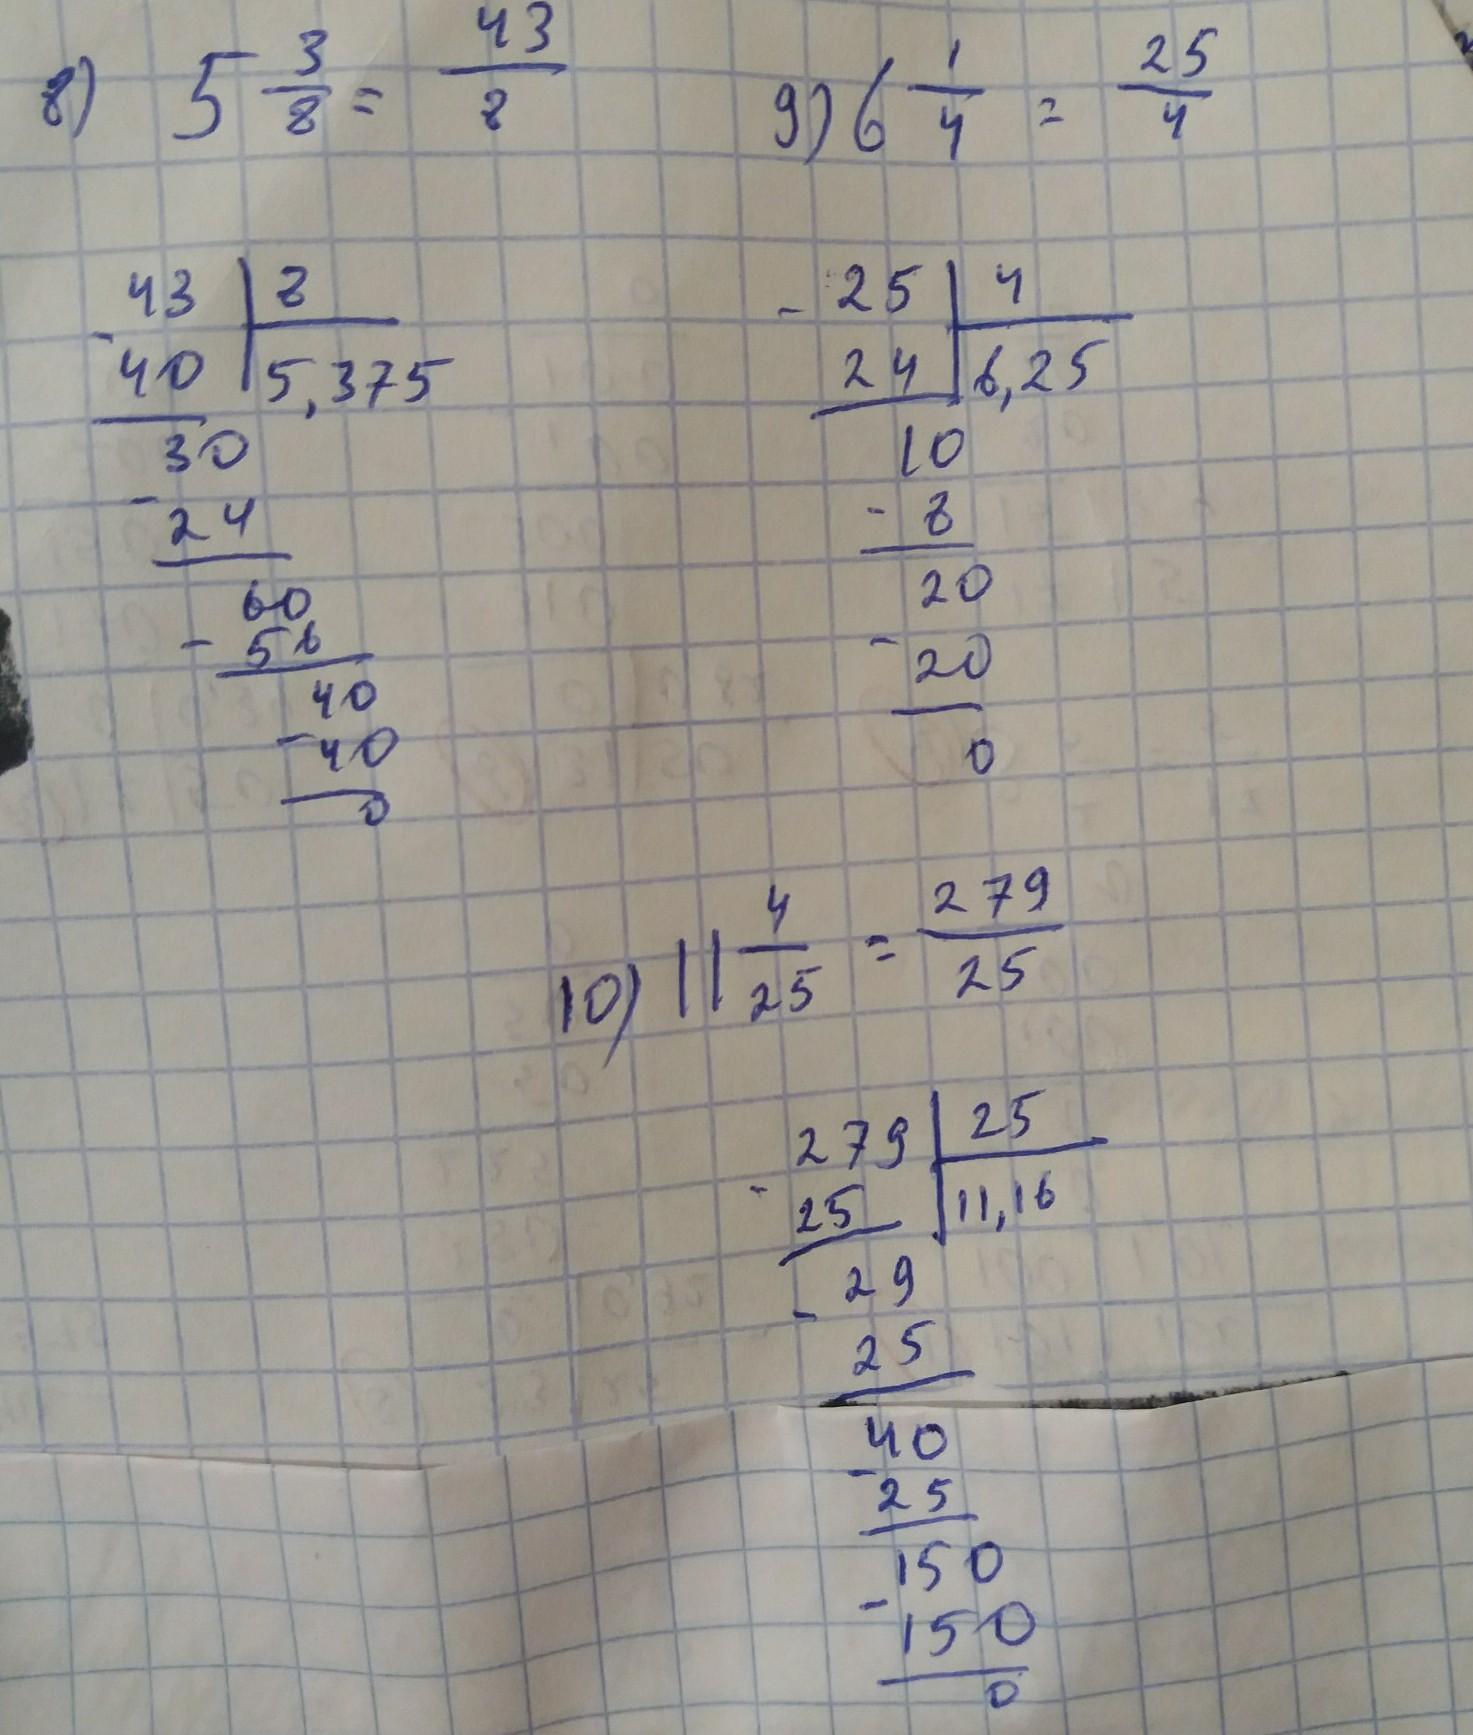 8) 5 3/8 = 43/8
43 | 8
- 40 | 5,375
30
- 24
60
- 56
40
- 40
0
9) 6 1/4 = 25/4
- 25 | 4
24 | 6,25
10
- 8
20
- 20
0
10) 11 4/25 = 279/25
279 | 25
- 25 | 11,16
29
- 25
40
- 25
150
- 150
0